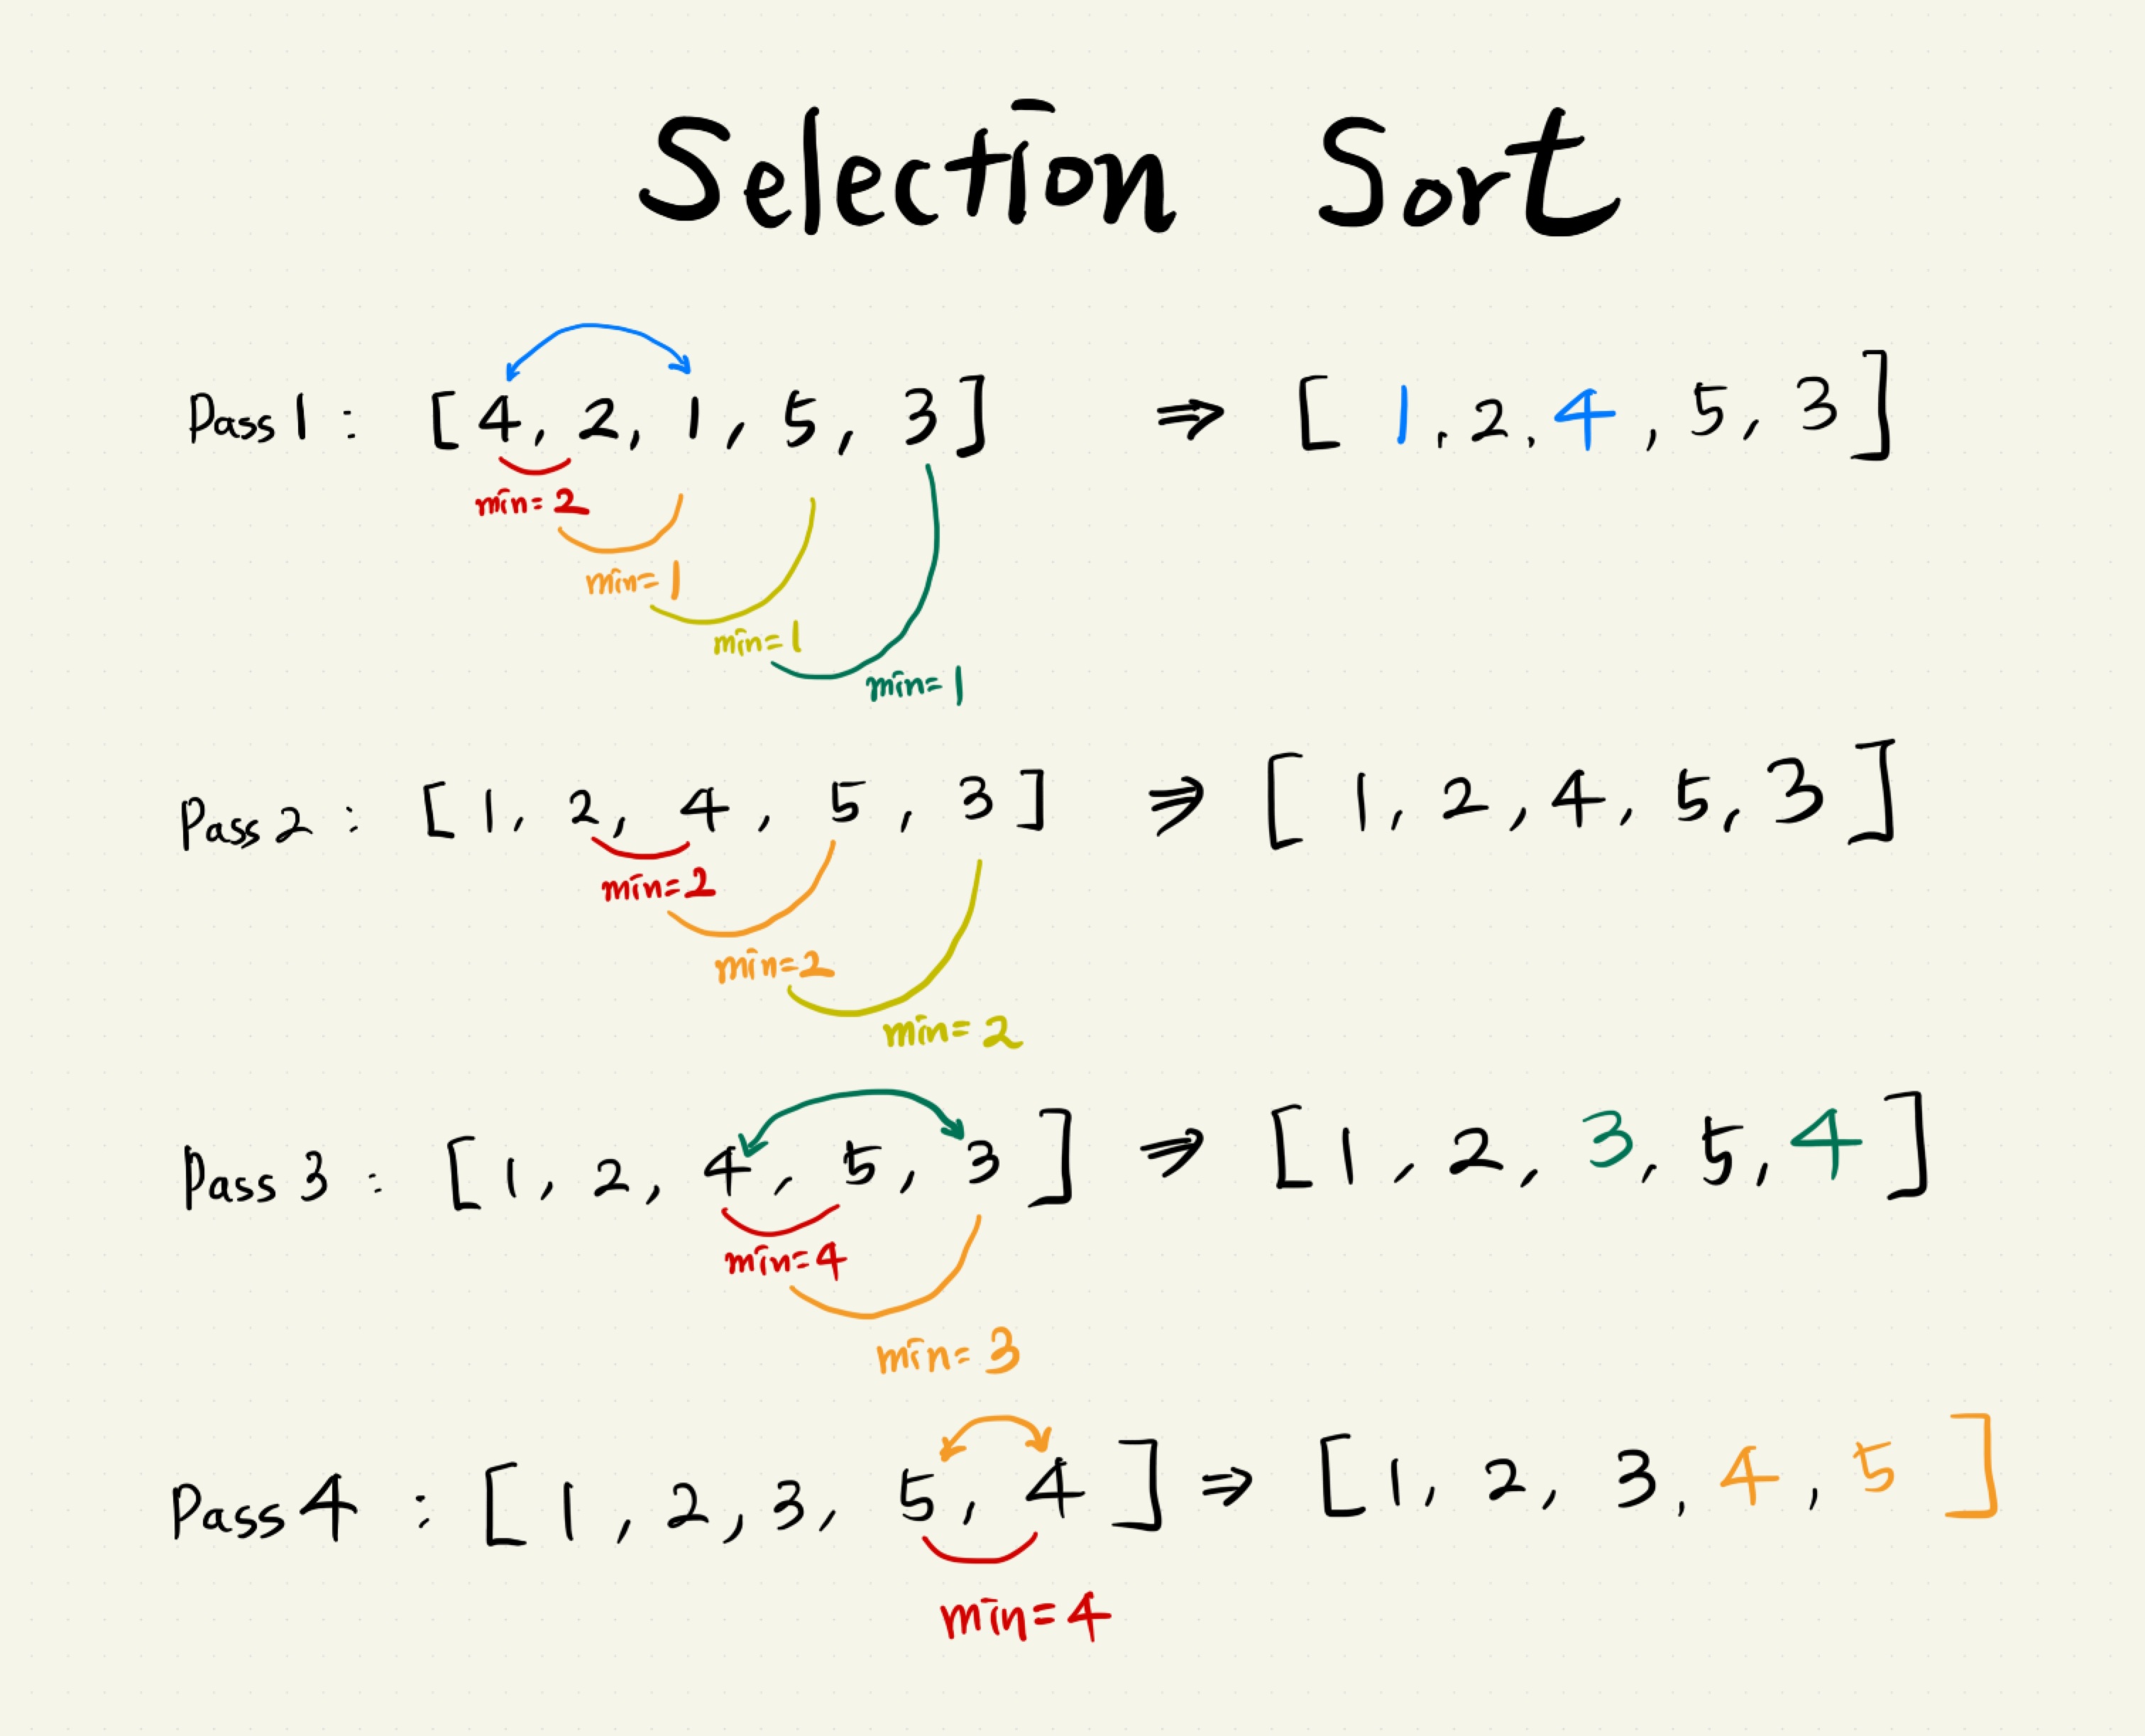 Selection Sort
Pass 1 : [ 4, 2, 1, 5, 3 ] ⇒ [ 1, 2, 4, 5, 3 ]
min=2
min=1
min=1
min=1
Pass 2 : [ 1, 2, 4, 5, 3 ] ⇒ [ 1, 2, 4, 5, 3 ]
min=2
min=2
min=2
Pass 3 : [ 1, 2, 4, 5, 3 ] ⇒ [ 1, 2, 3, 5, 4 ]
min=4
min=3
Pass 4 : [ 1, 2, 3, 5, 4 ] ⇒ [ 1, 2, 3, 4, 5 ]
min=4